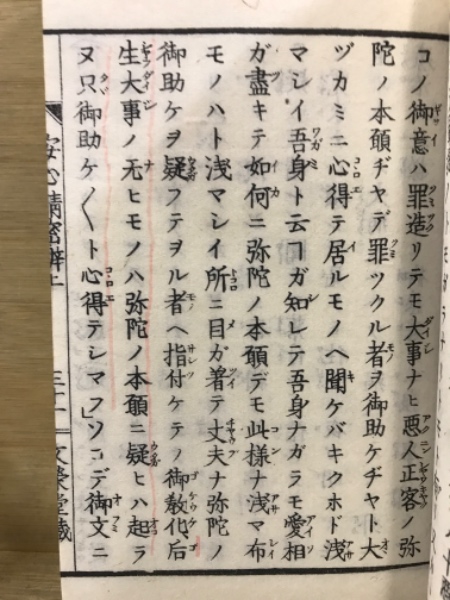 コノ御意ハ罪造リテモ大事ナヒ悪人正客ノ弥
陀ノ本願ヂヤデ罪ツクル者ヲ御助ケヂヤト大
ヅカミニ心得テ居ルモノヘ聞ケバキクホド浅
マレイ吾身ト云ヿガ知レテ吾身ナガラモ愛相
ガ盡キテ如何ニ弥陀ノ本願デモ此様ナ浅マ布
モノハト浅マシイ所ニ目ガ着テ丈夫ナ弥陀ノ
御助ケヲ疑フテヲル者ヘ指付ケテノ御教化后
生大事ノ无ヒモノハ弥陀ノ本願ニ疑ヒハ起ラ
ヌ只御助ケノ〱ト心得テシマフ」ソコデ御文ニ
安心精密辨上 三十一 文榮堂藏